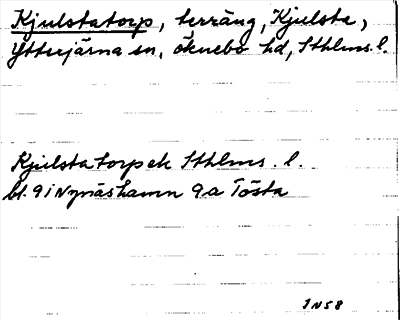 Kjulstatorp, terräng, Kjulsta,
Ytterjärna sn, Öknebo hd, Sthlms. l.
Kjulstatorp ek Sthlms. l.
bl. 9i Nynäshamn 9a Tösta
IN58